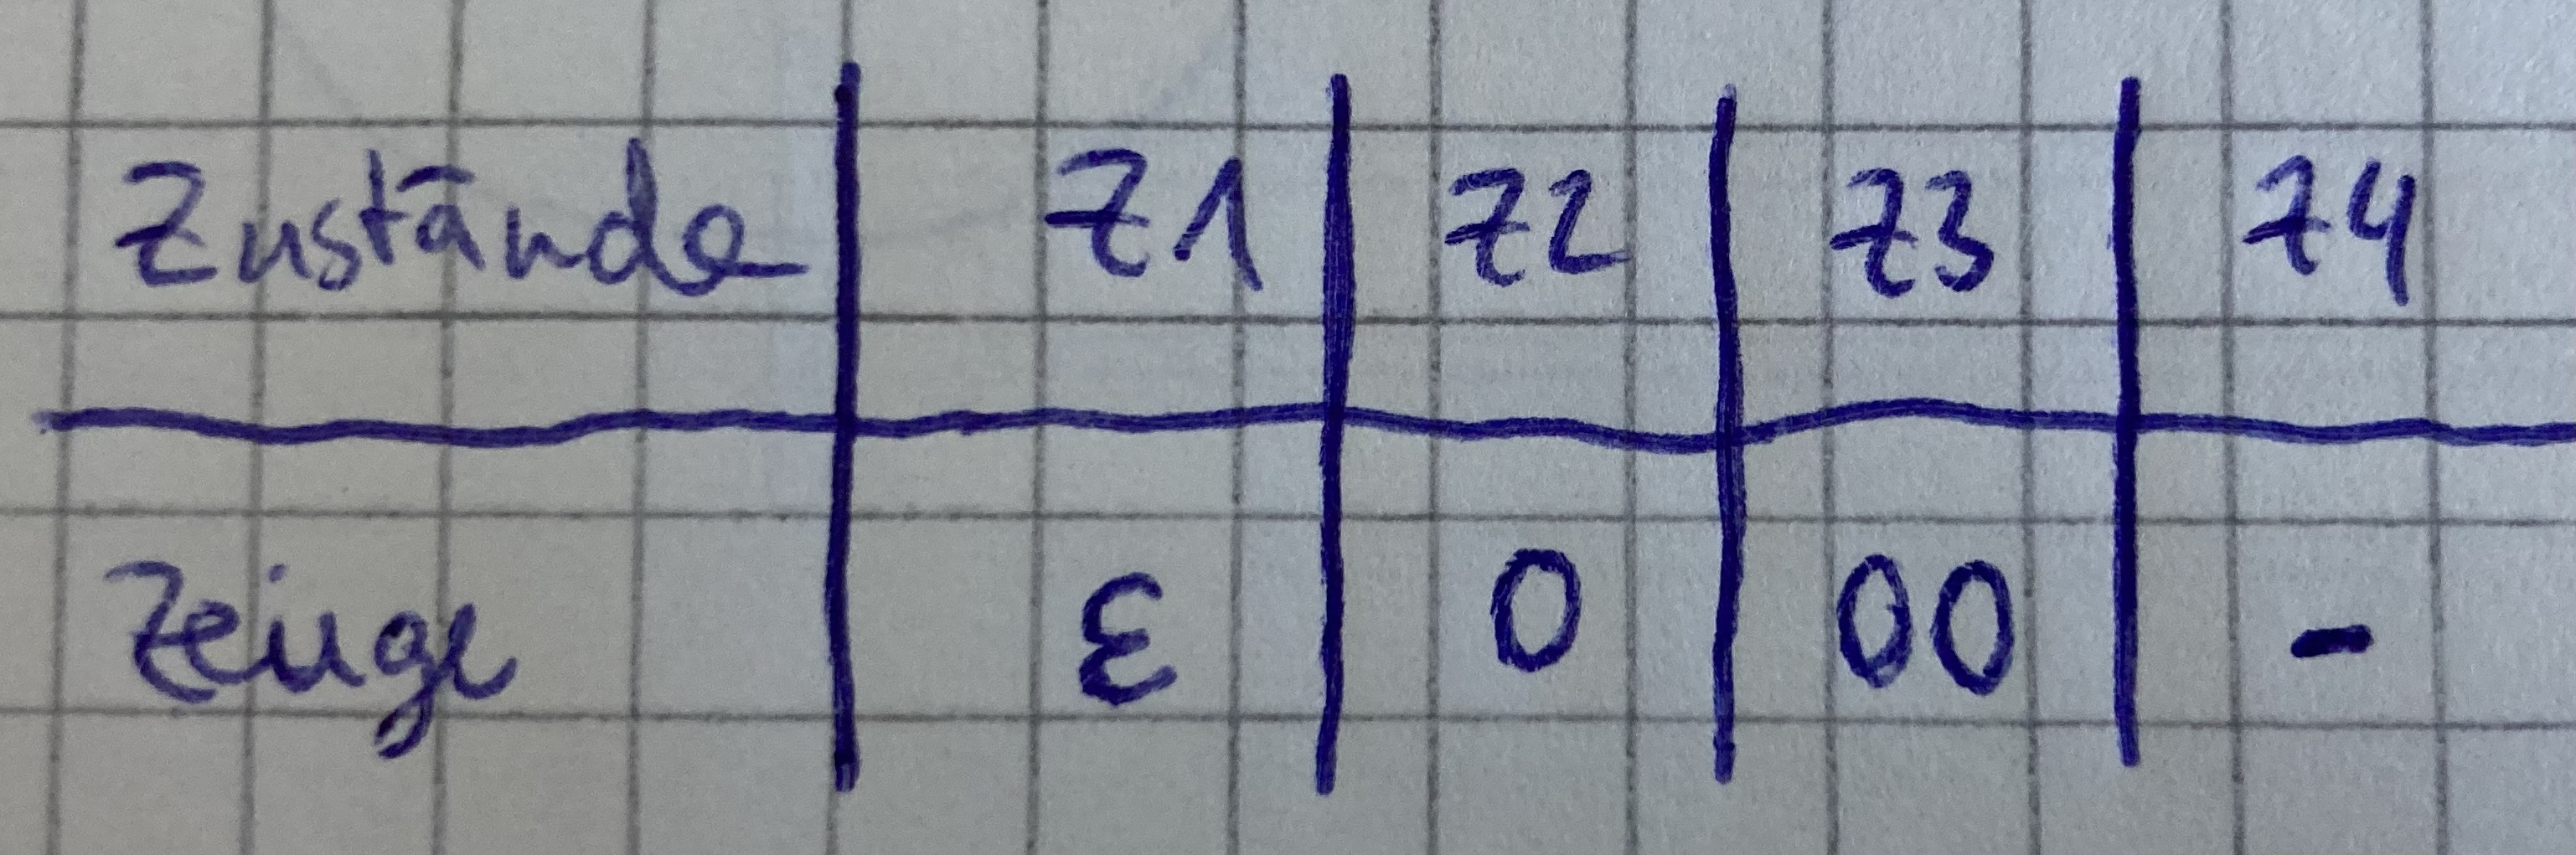 Zustände Z1 Z2 Z3 Z4
Zeuge ε 0 00 -